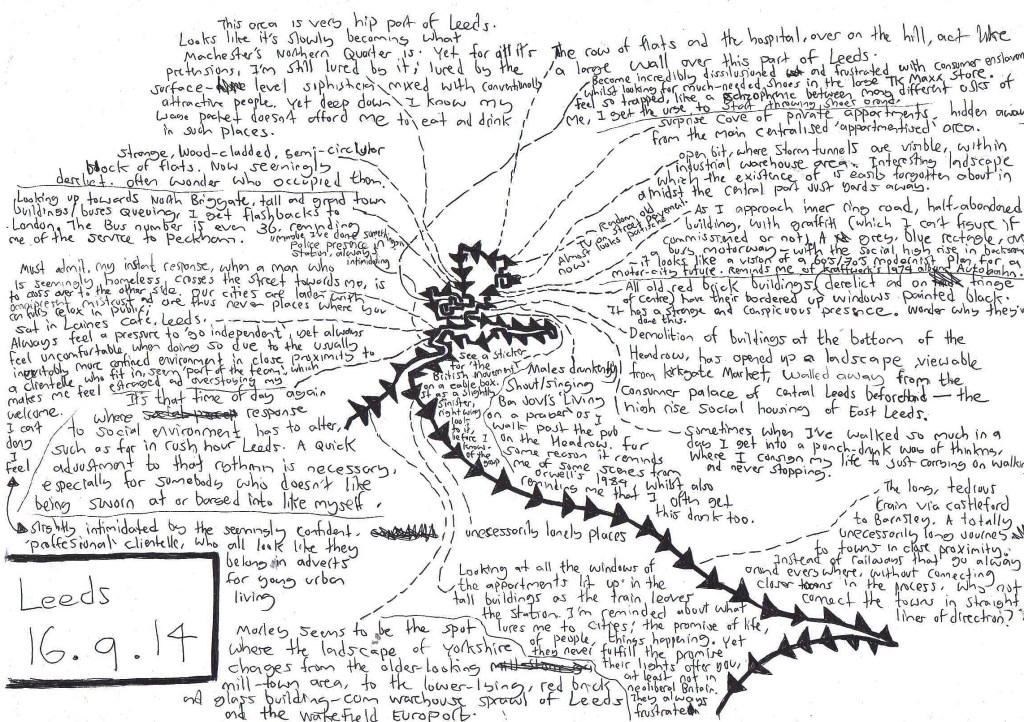 This area is very hip part of Leeds.
Looks like it's slowly becoming what
Machester's Northern Quarter is. Yet for all it's
pretensions, I'm still lured by it; lured by the
surface- level siphisticism mixed with conventionally
attractive people. Yet deep down I know my
wage packet doesn't afford me to eat and drink
in such places.
The row of flats and the hospital, over on the hill, act like
a large wall over this part of Leeds.
Become incredibly dissilusioned and frustrated with consumer enslavem
whilst looking for much-needed shoes in the large TK Maxx store.
feel so trapped, like a schizophrenic between many different asks of
me, I get the urge to start throwing shoes around.
surprise cove of private appartments, hidden away
from the main centralised 'appartmentised' area.
open bit, where storm tunnels are visible, within
industrial warehouse area. Interesting landscape
which the existence of is easily forgotten about in
amidst the central part just yards away.
strange, wood-cladded, semi-circular
block of flats. Now seemingly
derelict. often wonder who occupied them.
Looking up towards North Briggate, tall and grand town
buildings/buses queuing, I get flashbacks to
London. The Bus number is even 36, reminding
me of the service to Peckham.
maybe I've done something
Police presence in
Station, always
intimidating
random old
TV on street
Almost looks
now!
As I approach inner ring road, half-abandoned
building, with graffiti (which I can't figure if
commissioned or not). A grey, blue rectangle, over
busy motorway with the social high rise in background
- it looks like a vision of a 60s/70s modernist plan for a
motor-city future. reminds me of Kraftwerk's 1974 album Autobahn.
All old red brick buildings (derelict and on fringe
of centre) have their bordered up windows painted black.
It has a strange and conspicuous presence. Wonder why they've
done this.
Must admit, my instant response, when a man who
is seemingly homeless crosses the street towards me, is
to cross over to the other side. Our cities are laden with
omnipresent mistrust and are thus never places where you
can ever relax in public.
sat in Laines Cafe, Leeds.
Always feel a pressure to 'go independent', yet always
feel uncomfortable, when doing so due to the usually
inevitably more confined enviroment in close proximity to
a clientelle who fit in, seem 'part of the team', which
makes me feel estranged and overstaying my
welcome.
I can't
deny
I
feel
slightly intimidated by the seemingly confident,
'proffesional' clientelle, who all look like they
belong in adverts
for young urban
living
It's that time of day again
where response
to social enviroment has to alter,
such as for in rush hour Leeds. A quick
adjustment to that rythmn is necessary,
especially for somebody who doesn't like
being sworn at or barged into like myself.
see a sticker
for 'the
British Movement'
on a cable box.
It as a slightly
sinister,
right wing
look
to it,
before I
know
of the
group
Males drunkenly
Shout/singing
Bon Jovi's 'Living
on a prayer' as I
walk past the pub
on the Headrow. For
some reason it reminds
me of some scenes from
Orwell's 1984, whilst also
reminding me that I
often get
this drunk too.
Demolition of buildings at the bottom of the
Headrow, has opened up a landscape viewable
from Kirkgate Market, walled away from the
Consumer palace of Central Leeds beforehand - the
high rise social housing of East Leeds.
Sometimes when I've walked so much in a
day I get into a punch-drunk way of thinking,
where I consign my life to just carrying on walking
and never stopping.
The long, tedious
train via Castleford
to Barnsley. A totally
unecessorily long journey
to towns in close proximity.
Instead of railways that go always
around everywhere, without connecting
closer towns in the process, why not
connect the towns in straight
liner of direction?
unecessorily lonely places
Looking at all the windows of
the appartments lit up in the
tall buildings as the train leaves
the station. I'm reminded about what
lures me to cities; the promise of life,
of people, things happening. Yet
they never fulfill the promise
their lights offer you,
at least not in
neoliberal Britain.
They always
frustrate
Morley seems to be the spot
where the ladscape of Yorkshire
changes from the older-looking
mill-town area, to the lower-lying, red brick
and glass building-com warehouse sprawl of Leeds
and the Wakefield Europort.
Leeds
16.9.14